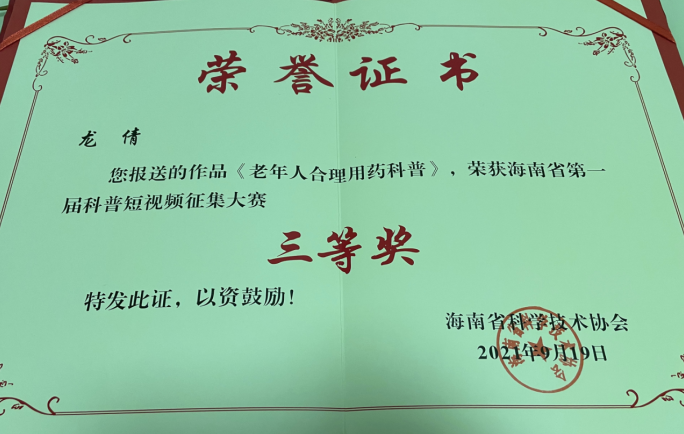 荣誉证书
龙 倩
您报送的作品《老年人合理用药科普》，荣获海南省第一
届科普短视频征集大赛
三等奖
特发此证，以资鼓励！
海南省科学技术协会
2021年9月19日
海南省科学技术协会